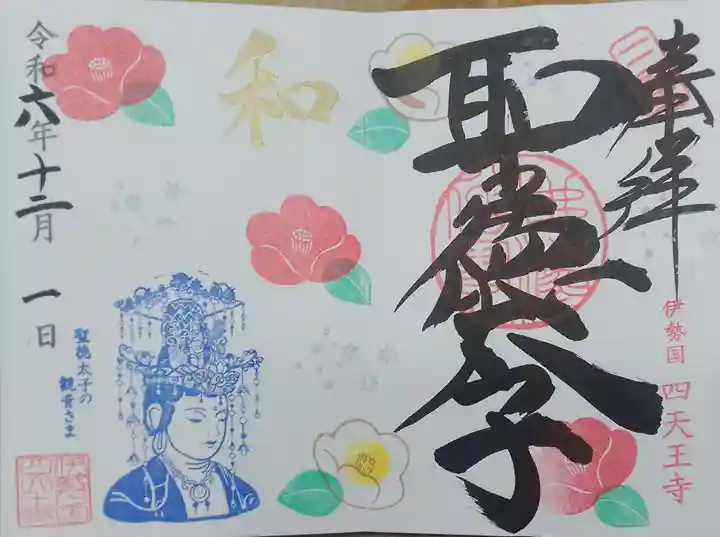 奉拝
聖徳太子
伊勢国 四天王寺
和
聖徳太子の
観音さま
令和六年十二月 一日